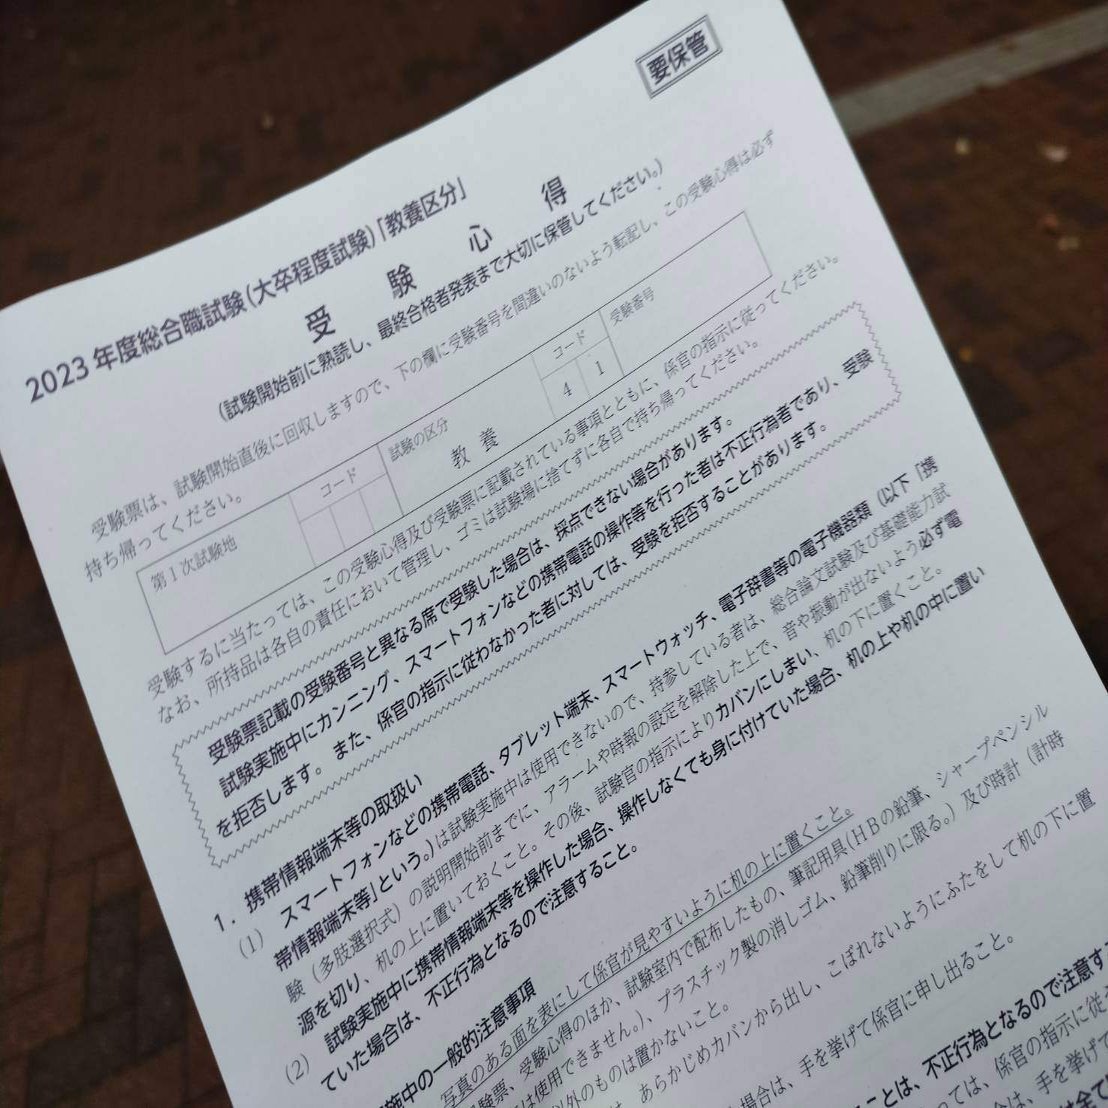 要保管
2023年度総合職試験（大卒程度試験）「教養区分」
受験心得
（試験開始前に熟読し、最終合格者発表まで大切に保管してください。）
受験票は、試験開始直後に回収しますので、下の欄に受験番号を間違いのないよう転記し、この受験心得は必ず
持ち帰ってください。
第1次試験地 コード 試験の区分 教養 コード 4 1 受験番号
受験するに当たっては、この受験心得及び受験票に記載されている事項とともに、係官の指示に従ってください。
なお、所持品は各自の責任において管理し、ゴミは試験場に捨てずに各自で持ち帰ってください。
受験票記載の受験番号と異なる席で受験した場合は、採点できない場合があります。
試験実施中にカンニング、スマートフォンなどの携帯電話の操作等を行った者は不正行為者であり、受験
を拒否します。また、係官の指示に従わなかった者に対しては、受験を拒否することがあります。
1. 携帯情報端末等の取扱い
(1) スマートフォンなどの携帯電話、タブレット端末、スマートウォッチ、電子辞書等の電子機器類（以下「携
帯情報端末等」という。）は試験実施中は使用できないので、持参している者は、総合論文試験及び基礎能力試
験（多肢選択式）の説明開始前までに、アラームや時報の設定を解除した上で、音や振動が出ないよう必ず電
源を切り、机の上に置いておくこと。その後、試験官の指示によりカバンにしまい、机の下に置くこと。
(2) 試験実施中に携帯情報端末等を操作した場合、操作しなくても身に付けていた場合、机の上や机の中に置い
ていた場合は、不正行為となるので注意すること。
施中の一般的注意事項
写真のある面を表にして係官が見やすいように机の上に置くこと。
験票、受験心得のほか、試験室内で配布したもの、筆記用具（HBの鉛筆、シャープペンシル
は使用できません。）、プラスチック製の消しゴム、鉛筆削りに限る。）及び時計（計時
以外のものは置かないこと。
は、あらかじめカバンから出し、こぼれないようにふたをして机の下に置
場合は、手を挙げて係官に申し出ること。
ことは、不正行為となるので注意す
っては、係官の指示に従
は、手を挙げて